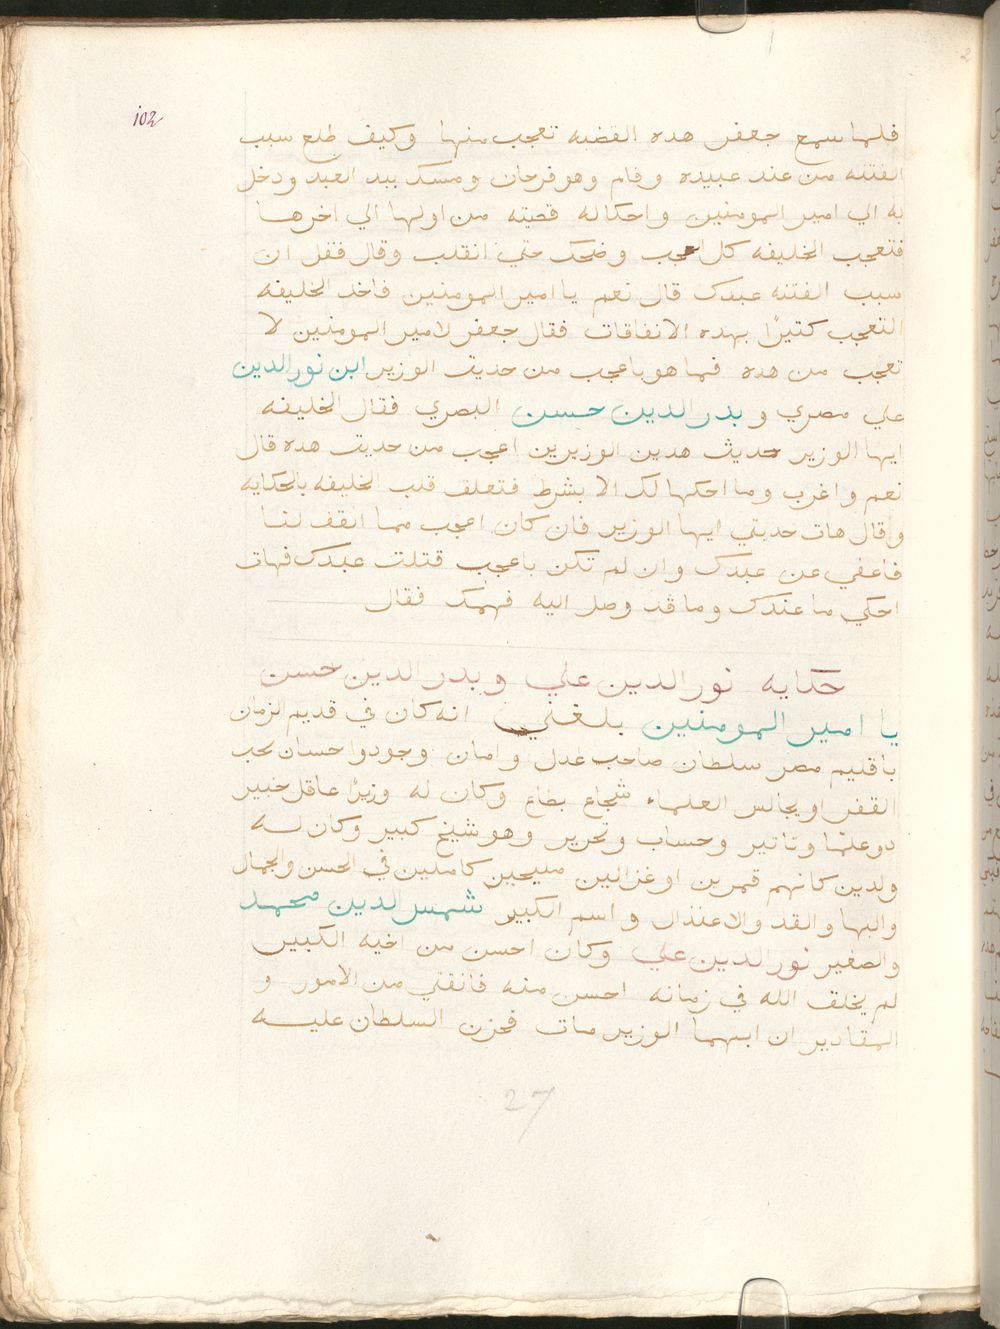 102
فلما سمع جعفر هده القضيه تعجب منها وكيف طلع سبب
الفتنه من عند عبيده وقام وهو فرحان ومسك بيد العبد ودخل
به الي امير المومنين واحكاله قصيته من اولها الي اخرها
فتعجب الخليفه كل العجب وضحك حتي انقلب وقال فقل ان
سبب الفتنه عبدك قال نعم يا امير المومنين فاخد الخليفه
التعجب كتيرًا بهده الاتفاقات فقال جعفر لامير المومنين لا
تعجب من هده فما هو باعجب من حديت الوزير ابن نور الدين
علي مصري و بدر الدين حسن البصري فقال الخليفه
ايها الوزير حديث هدين الوزيرين اعجب من حديت هده قال
نعم واغرب وما احكها لك الا بشرط فتعلق قلب الخليفه بالحكايه
وقال هات حديتي ايها الوزير فان كان اعجب مما اتفق لنا
فاعفي عن عبدك وان لم تكن باعجب قتلت عبدك فهات
احكي ما عندك وما قد وصل اليه فهمك فقال
حكايه نور الدين علي وبدر الدين حسن
يا امير المومنين بلغني انه كان في قديم الزمان
باقليم مصر سلطان صاحب عدل وامان وجودوا حسان يحب
الفقرا ويجالس العلماء شجاع بطاع وكان له وزيرًا عاقل خبير
دو علمًا وتاتير وحساب وتحرير وهو شيخ كبير وكان له
ولدين كانهم قمرين او غزالين مليحين كاملين في الحسن والجمال
والبها والقد والاعتدال واسم الكبير شمس الدين محمد
والصغير نور الدين علي وكان احسن من اخيه الكبير
لم يخلق الله في زمانه احسن منه فاتفتي من الامور و
المقادير ان ابيهما الوزير مات فحزن السلطان عليه
27